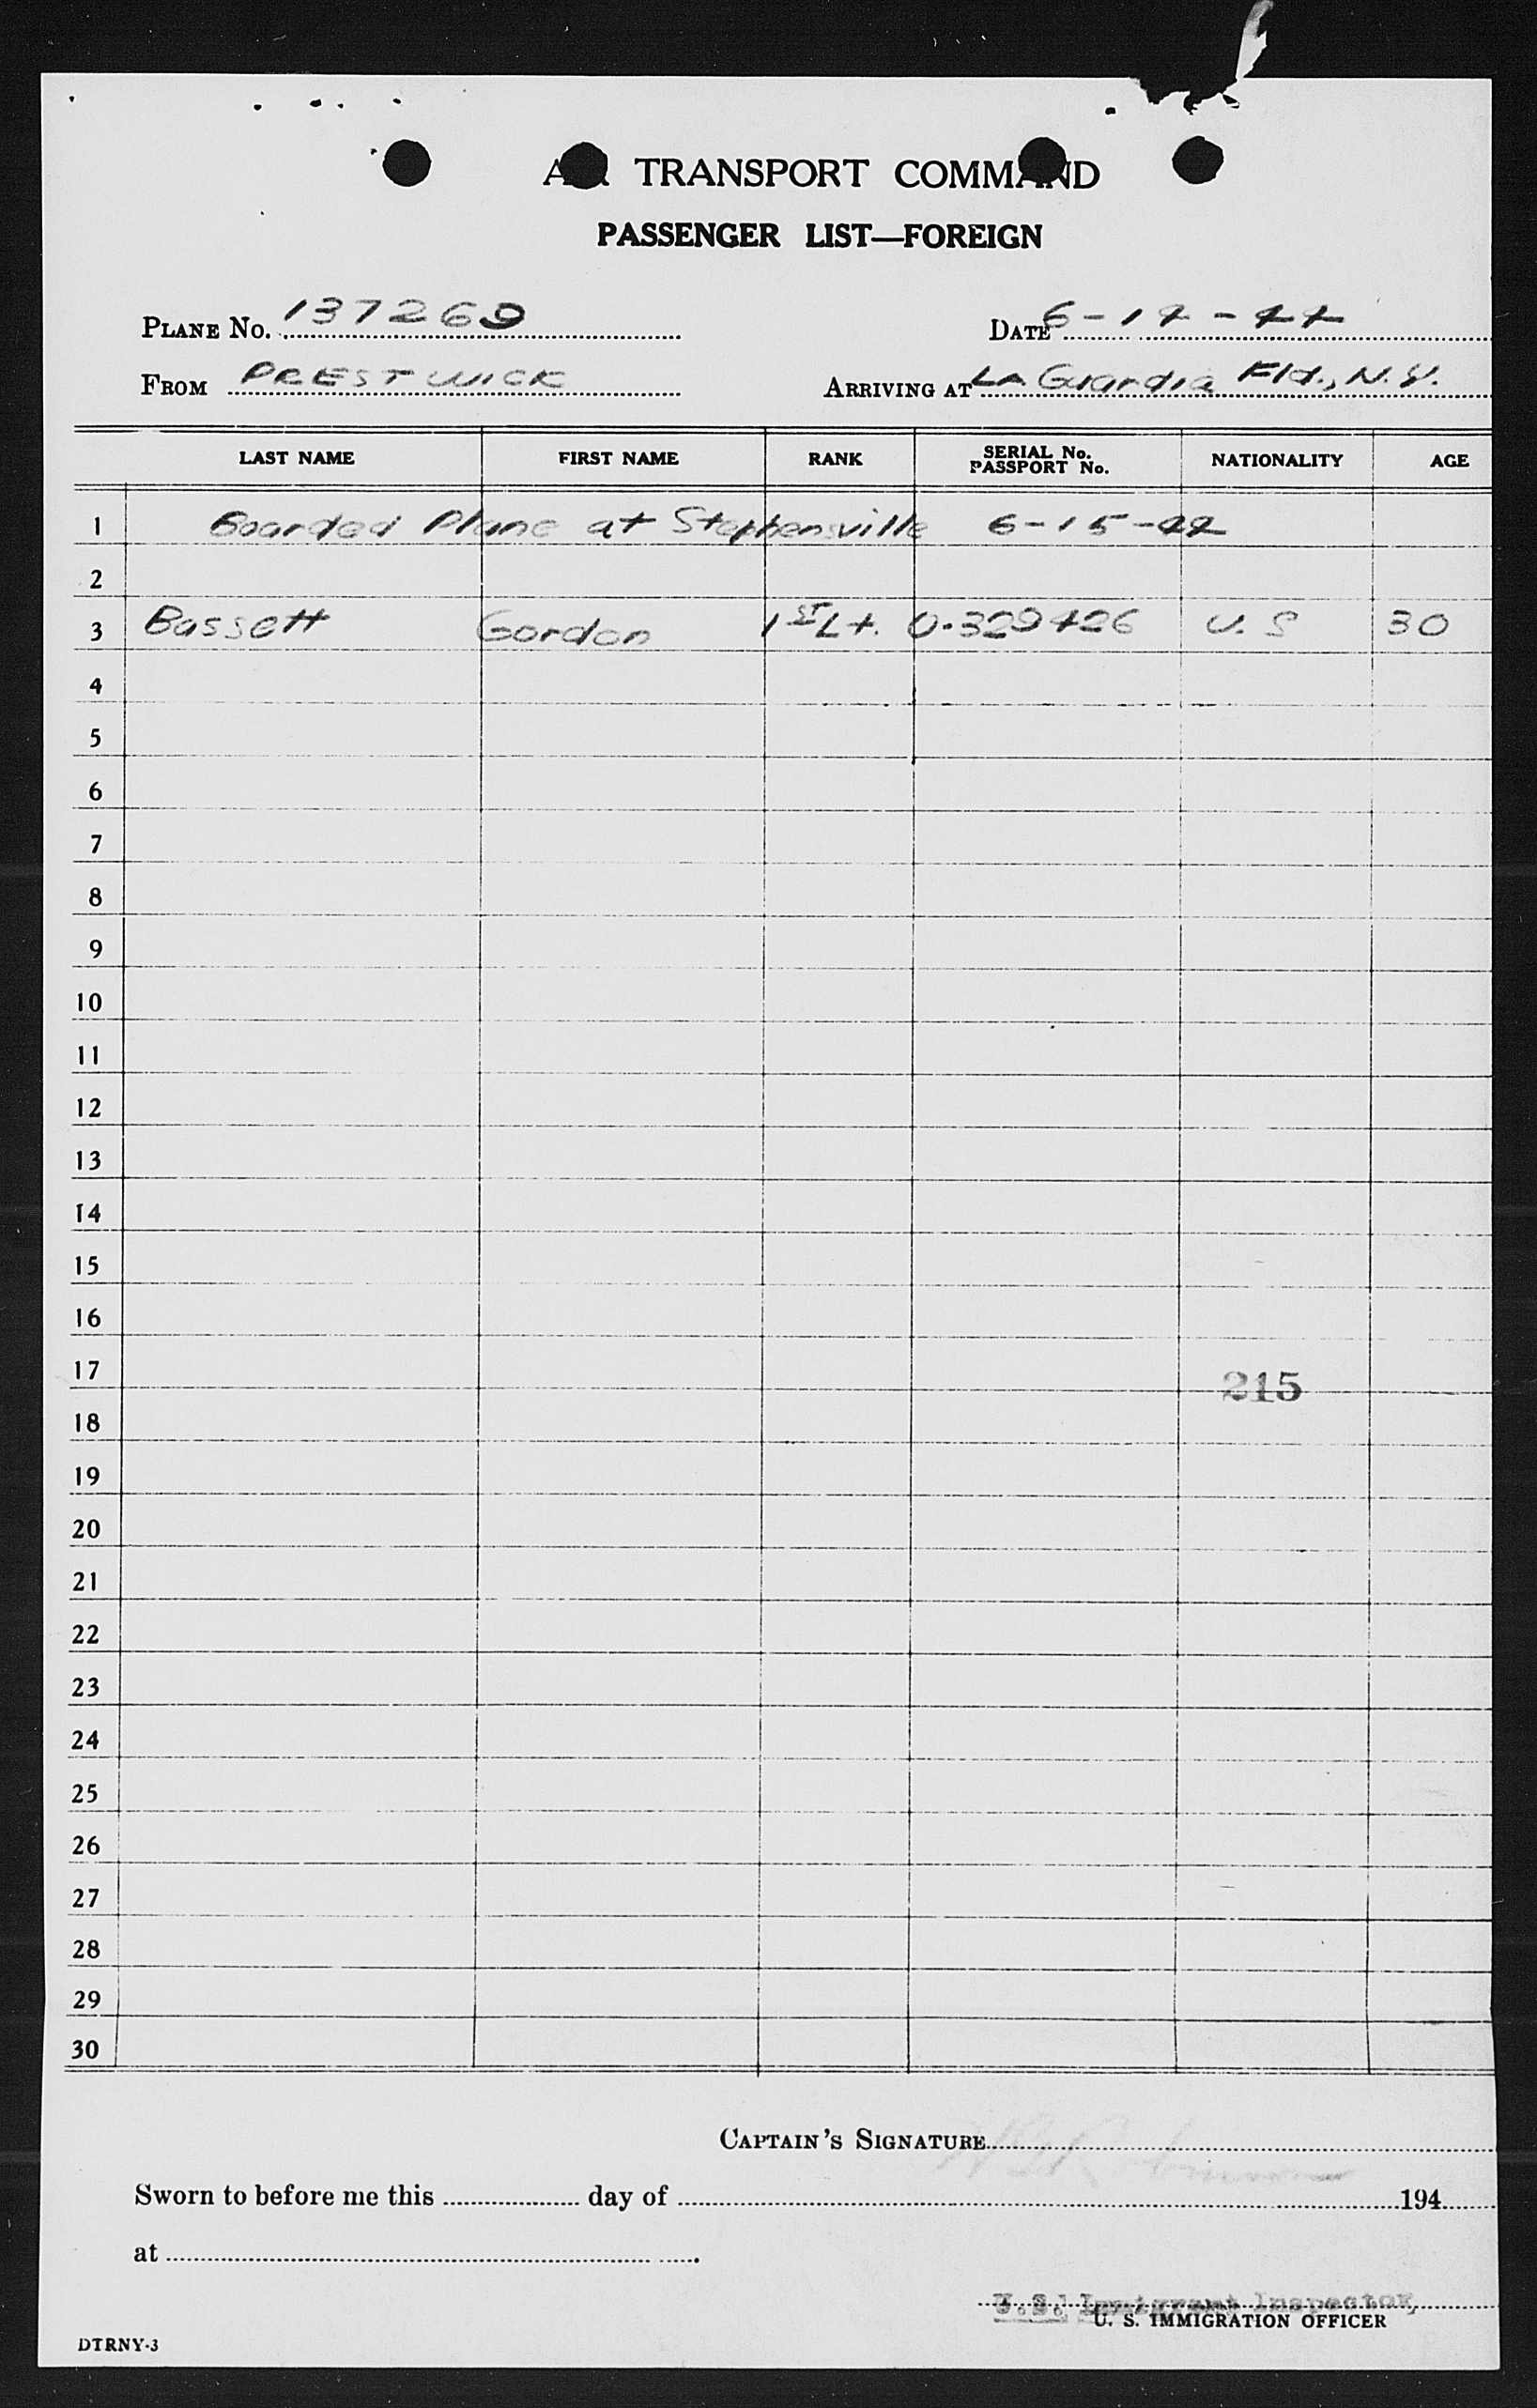 AIR TRANSPORT COMMAND
PASSENGER LIST—FOREIGN
PLANE No. 137269 DATE 6-14-44
FROM PRESTWICK ARRIVING AT La Guardia Fld., N.Y.
LAST NAME FIRST NAME RANK SERIAL No. PASSPORT No. NATIONALITY AGE
1 Boarded Plane at Stephensville 6-15-44
2
3 Bassett Gordon 1ST Lt. O-329426 U.S 30
4
5
6
7
8
9
10
11
12
13
14
15
16
17 215
18
19
20
21
22
23
24
25
26
27
28
29
30
CAPTAIN'S SIGNATURE
Sworn to before me this day of 194
at
U.S. Immigrant Inspector,
U. S. IMMIGRATION OFFICER
DTRNY-3